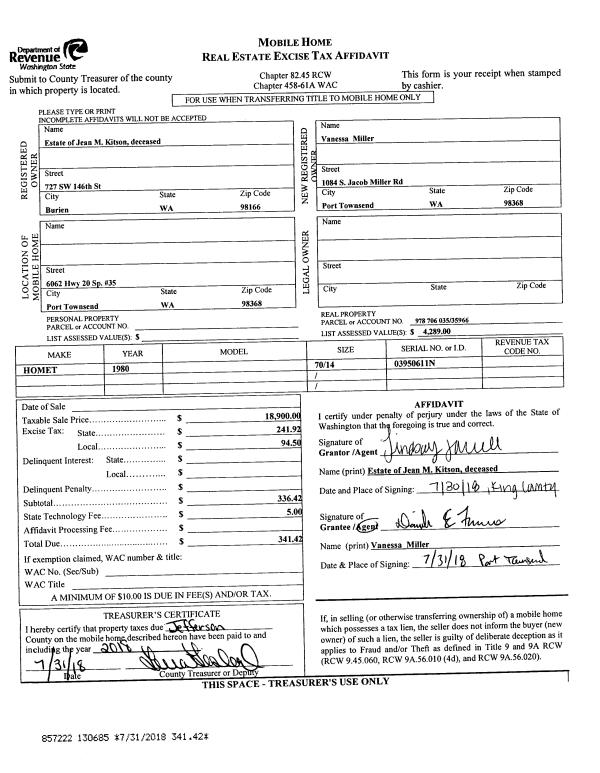 MOBILE HOME
REAL ESTATE EXCISE TAX AFFIDAVIT
Department of
Revenue
Washington State
Submit to County Treasurer of the county
in which property is located.
Chapter 82.45 RCW
Chapter 458-61A WAC
This form is your receipt when stamped
by cashier.
FOR USE WHEN TRANSFERRING TITLE TO MOBILE HOME ONLY
PLEASE TYPE OR PRINT
INCOMPLETE AFFIDAVITS WILL NOT BE ACCEPTED
REGISTERED OWNER
Name
Estate of Jean M. Kitson, deceased
Street
727 SW 146th St
City State Zip Code
Burien WA 98166
NEW REGISTERED OWNER
Name
Vanessa Miller
Street
1084 S. Jacob Miller Rd
City State Zip Code
Port Townsend WA 98368
LOCATION OF MOBILE HOME
Name
Street
6062 Hwy 20 Sp. #35
City State Zip Code
Port Townsend WA 98368
LEGAL OWNER
Name
Street
City State Zip Code
PERSONAL PROPERTY
PARCEL or ACCOUNT NO.
LIST ASSESSED VALUE(S): $
REAL PROPERTY
PARCEL or ACCOUNT NO. 978 706 035/35966
LIST ASSESSED VALUE(S): $ 4,289.00
MAKE YEAR MODEL SIZE SERIAL NO. or I.D. REVENUE TAX CODE NO.
HOMET 1980 70/14 03950611N
/
/
Date of Sale
Taxable Sale Price $ 18,900.00
Excise Tax: State $ 241.92
Local $ 94.50
Delinquent Interest: State $
Local $
Delinquent Penalty $
Subtotal $ 336.42
State Technology Fee $ 5.00
Affidavit Processing Fee $
Total Due $ 341.42
If exemption claimed, WAC number & title:
WAC No. (Sec/Sub)
WAC Title
A MINIMUM OF $10.00 IS DUE IN FEE(S) AND/OR TAX.
AFFIDAVIT
I certify under penalty of perjury under the laws of the State of
Washington that the foregoing is true and correct.
Signature of
Grantor /Agent
Name (print) Estate of Jean M. Kitson, deceased
Date and Place of Signing: 7/30/18, King County
Signature of
Grantee /Agent
Name (print) Vanessa Miller
Date & Place of Signing: 7/31/18 Port Townsend
TREASURER'S CERTIFICATE
I hereby certify that property taxes due Jefferson
County on the mobile home described hereon have been paid to and
including the year 2018
7/31/18
Date County Treasurer or Deputy
If, in selling (or otherwise transferring ownership of) a mobile home
which possesses a tax lien, the seller does not inform the buyer (new
owner) of such a lien, the seller is guilty of deliberate deception as it
applies to Fraud and/or Theft as defined in Title 9 and 9A RCW
(RCW 9.45.060, RCW 9A.56.010 (4d), and RCW 9A.56.020).
THIS SPACE - TREASURER'S USE ONLY
857222 130685 *7/31/2018 341.42*